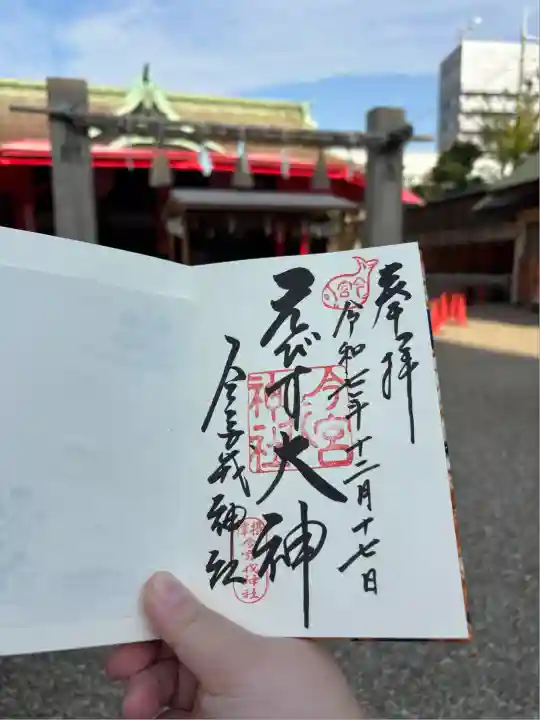 奉拝
令和七年十二月十七日
えびす大神
今宮戎神社
今宮
神社
今宮戎神社